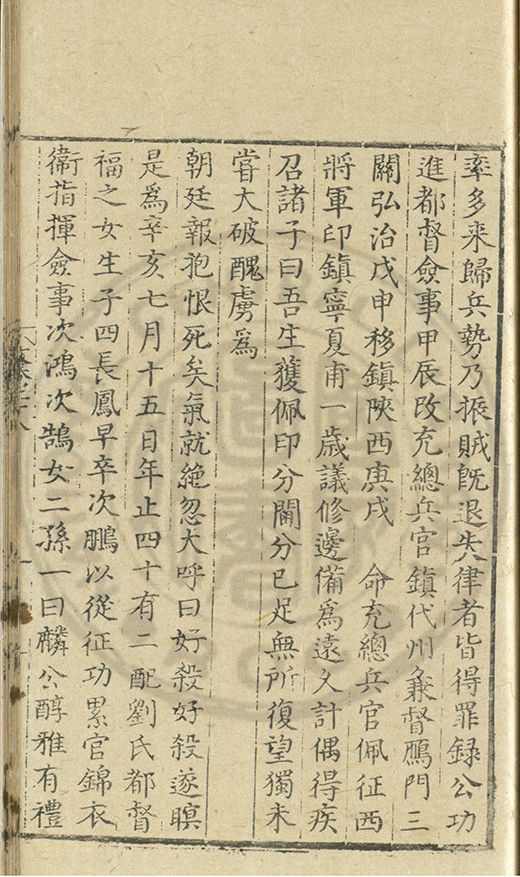 率多来歸兵勢乃振賊既退失律者皆得罪録公功
進都督僉事甲辰改充總兵官鎮代州兼督鴈門三
關弘治戊申移鎮陝西庚戌　命充總兵官佩征西
將軍印鎮寧夏甫一歳議修邊備爲遠久計偶得疾
召諸子曰吾生獲佩印分閫分已足無所復望獨未
嘗大破醜虜爲
朝廷報抱恨死矣氣就絶忽大呼曰好殺好殺遂瞑
是爲辛亥七月十五日年止四十有二配劉氏都督
福之女生子四長鳳早卒次鵬以從征功累官錦衣
衞指揮僉事次鴻次鵠女二孫一曰麟公醇雅有禮